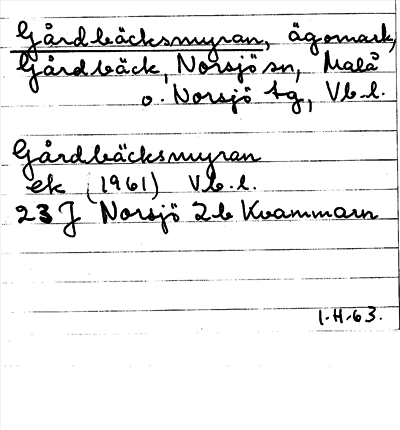 Gårdbäcksmyran, ägomark,
Gårdbäck, Norsjö sn, Malå
o. Norsjö tg, Vb.l.
Gårdbäcksmyran
ek (1961) Vb.l.
23J Norsjö 2b Kvammarn
1.H.63.